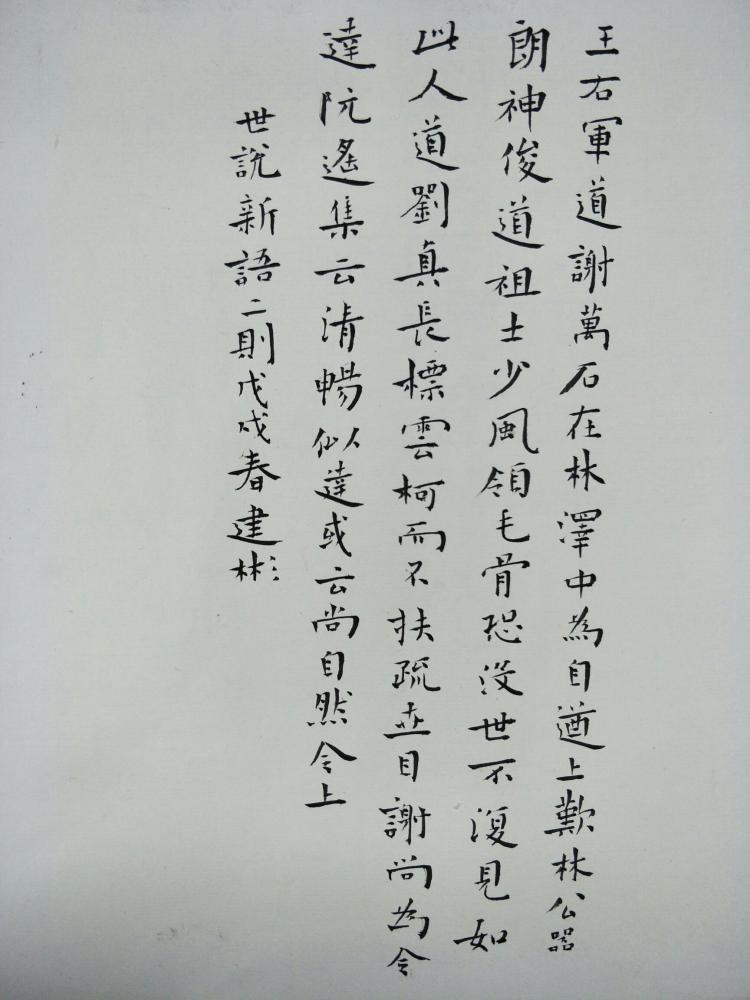 王右軍道謝萬石在林澤中為自遒上歎林公器
朗神俊道祖士少風領毛骨恐没世不復見如
此人道劉真長標雲柯而不扶疏並目謝尚為令
達阮遙集云清暢似達或云尚自然令上
世說新語二則戊戌春建彬